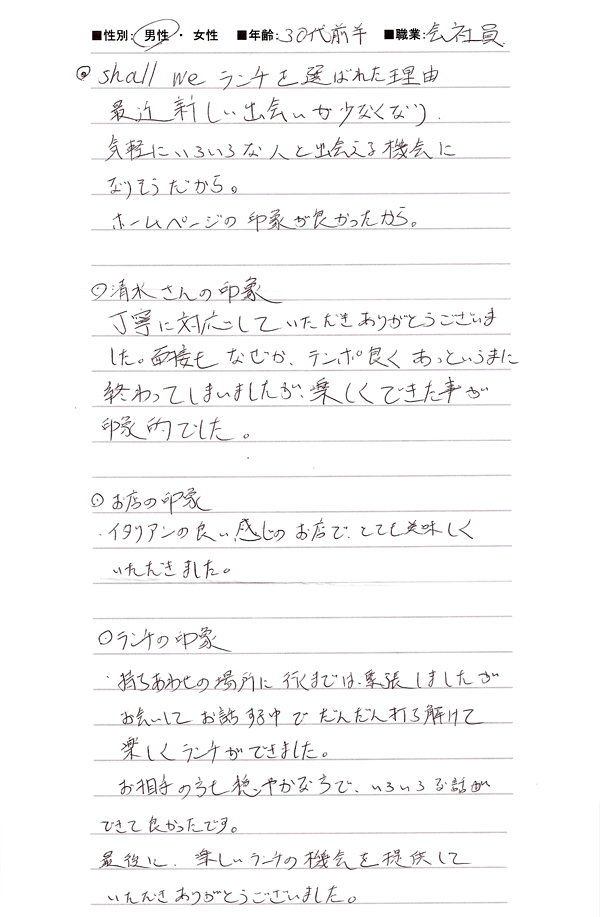 ■性別: 男性 ・ 女性 ■年齢: 30代前半 ■職業: 会社員
◎ shall we ランチを選ばれた理由
最近新しい出会いが少なくなり、
気軽にいろいろな人と出会える機会に
なりそうだから。
ホームページの印象が良かったから。
○清水さんの印象
丁寧に対応していただきありがとうございま
した。面接もなぜか、テンポ良くあっというまに
終わってしまいましたが、楽しくできた事が
印象的でした。
○お店の印象
・イタリアンの良い感じのお店で、とても美味しく
いただきました。
○ランチの印象
・待ちあわせの場所に行くまでは、緊張しましたが
お会いしてお話する中でだんだん打ち解けて
楽しくランチができました。
お相手の方も穏やかな方で、いろいろな話が
できて良かったです。
最後に、楽しいランチの機会を提供して
いただきありがとうございました。